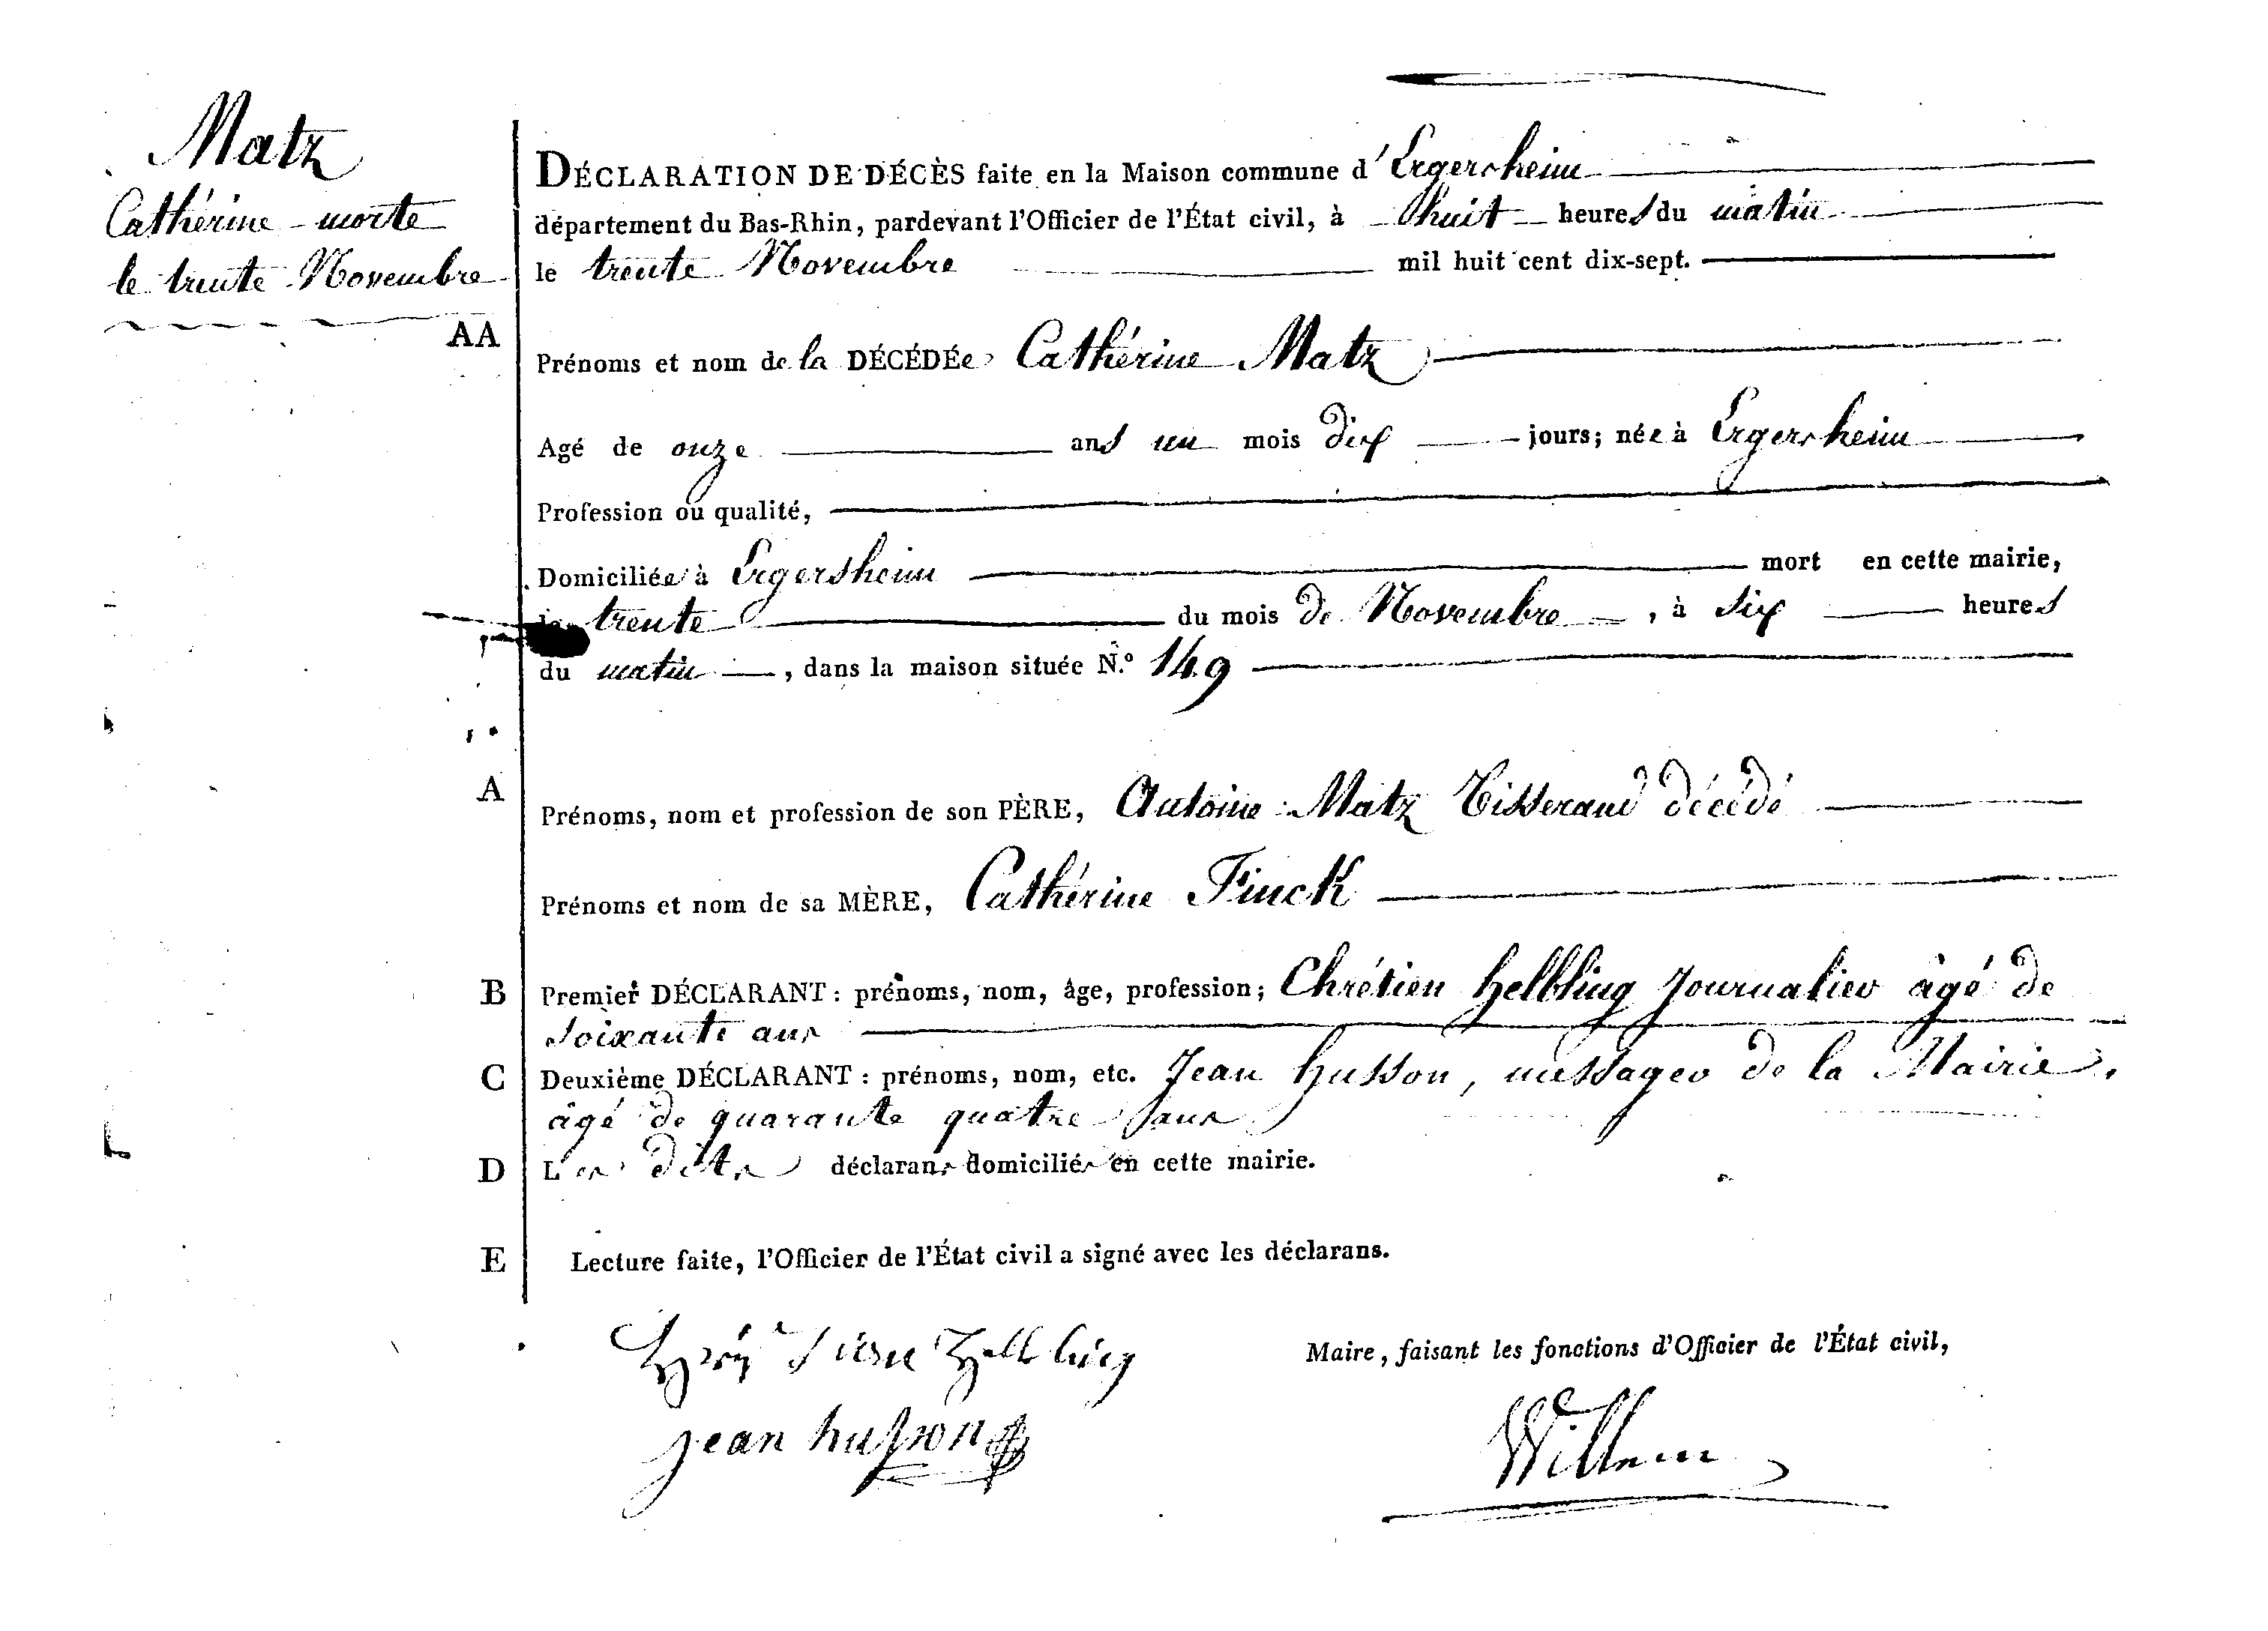 Matz
Cathérine morte
le trente Novembre
AA
DÉCLARATION DE DÉCÈS faite en la Maison commune d'Ergersheim
département du Bas-Rhin, pardevant l'Officier de l'État civil, à huit heures du matin
le trente Novembre mil huit cent dix-sept.
Prénoms et nom de la DÉCÉDÉe Cathérine Matz
Agé de onze ans un mois dix jours; née à Ergersheim
Profession ou qualité,
Domiciliée à Ergersheim mort en cette mairie,
le trente du mois de Novembre, à six heures
du matin, dans la maison située N.º 149
A
Prénoms, nom et profession de son PÈRE, Antoine Matz Tisserand décédé
Prénoms et nom de sa MÈRE, Cathérine Finck
B
Premier DÉCLARANT: prénoms, nom, âge, profession; Chrétien Helbling Journalier âgé de
soixante ans
C
Deuxième DÉCLARANT: prénoms, nom, etc. Jean Husson, messager de la Mairie,
âgé de quarante quatre ans
D
Les dits déclarans domiciliés en cette mairie.
E
Lecture faite, l'Officier de l'État civil a signé avec les déclarans.
Helbling
Maire, faisant les fonctions d'Officier de l'État civil,
jean husson
Willem